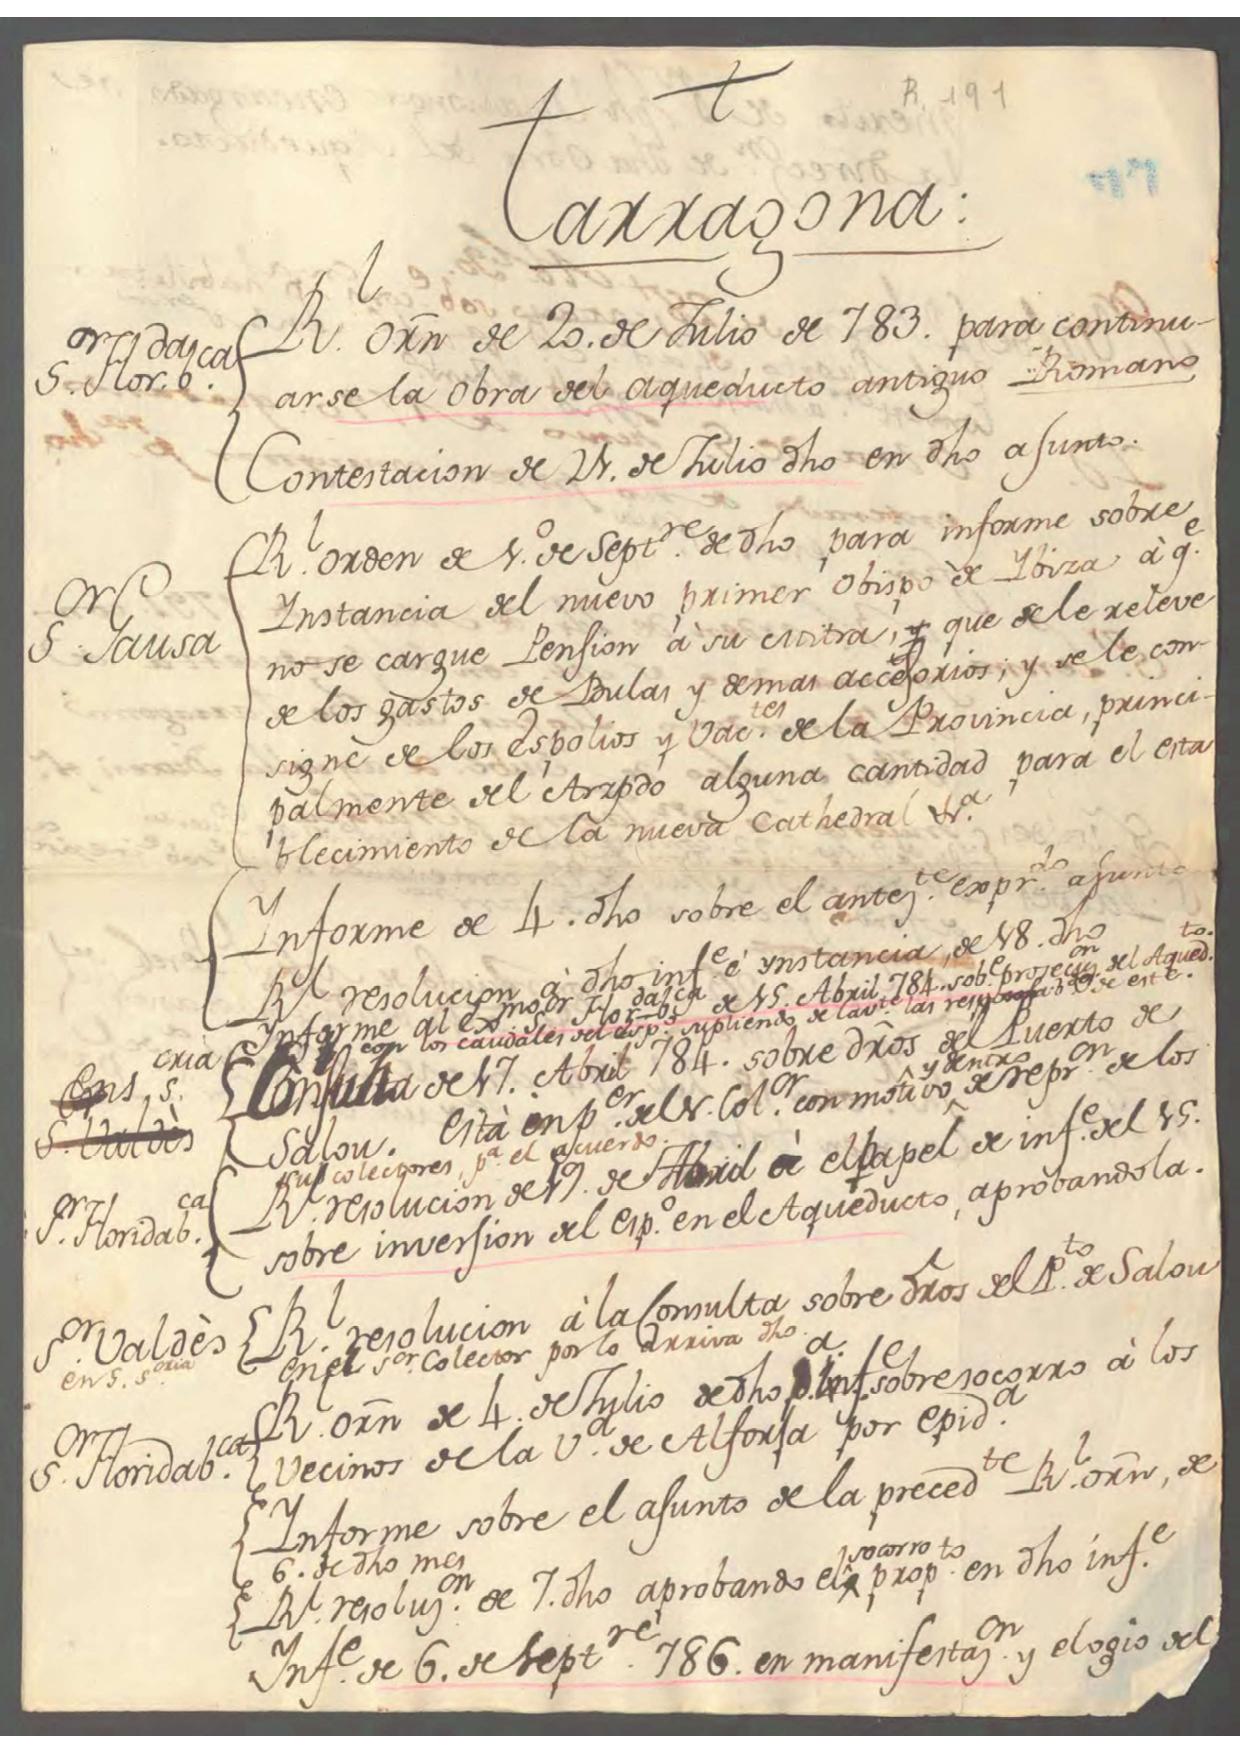 R. 191
t
Tarragona:
S.or Flor.dab.ca
R.l orñ de 20. de Julio de 783. para continu-
arse la obra del aqueducto antiguo Romano
Contestacion de 24. de Julio dho en dho asunto.
S.or Sausa
R.l orden de 1.º de Sept.re de dho para informe sobre
Instancia del nuevo primer Obispo de Ybiza à q.e
no se cargue Pension à su mitra, y que se le releve
de los gastos de Bulas y demas accesorios; y se le con-
signe de los Espolios y Vac.tes de la Provincia, princi-
palmente del Arzpdo alguna cantidad para el esta
blecimiento de la nueva Cathedral &.a
Informe de 4. dho sobre el antez.te expr.do asunto
R.l resolucion à dho inf.e è ynstancia, de 18. dho
Informe al Exmo S.or Floridab.ca de 15. Abril 784. sob.e prosecuz.on del Aqued.to.
con los caudales del Esp.o supliendo de las de este.
En S. S.cria
S. Valdès
Consulta de 17. Abril 784. sobre dr̃os del Puerto de
Salou. està en p.er del S. Col.or con motivo y dentro de repr.on de los
sub colectores, p.a el acuerdo.
S.or Floridab.ca
R.l resolucion de 19. de Abril à el papel de inf.e del 15.
sobre inversion del esp.o en el Aqueducto, aprobandola.
S.or Valdès
en S. S.oria
R.l resolucion à la Consulta sobre dr̃os del P.to de Salou
en el S.or Colector por lo arriva dho
S.or Floridab.ca
R.l orñ de 4. de Julio de dho a. inf.e sobre socorro à los
Vecinos de la V.a de Alforja por epid.a
Informe sobre el asunto de la preced.te R.l orñ, de
6. de dho mes
R.l resoluz.on de 7. dho aprobando el socorro prop.to en dho inf.e
Inf.e de 6. de Sept.re 786. en manifestaz.on y elogio del